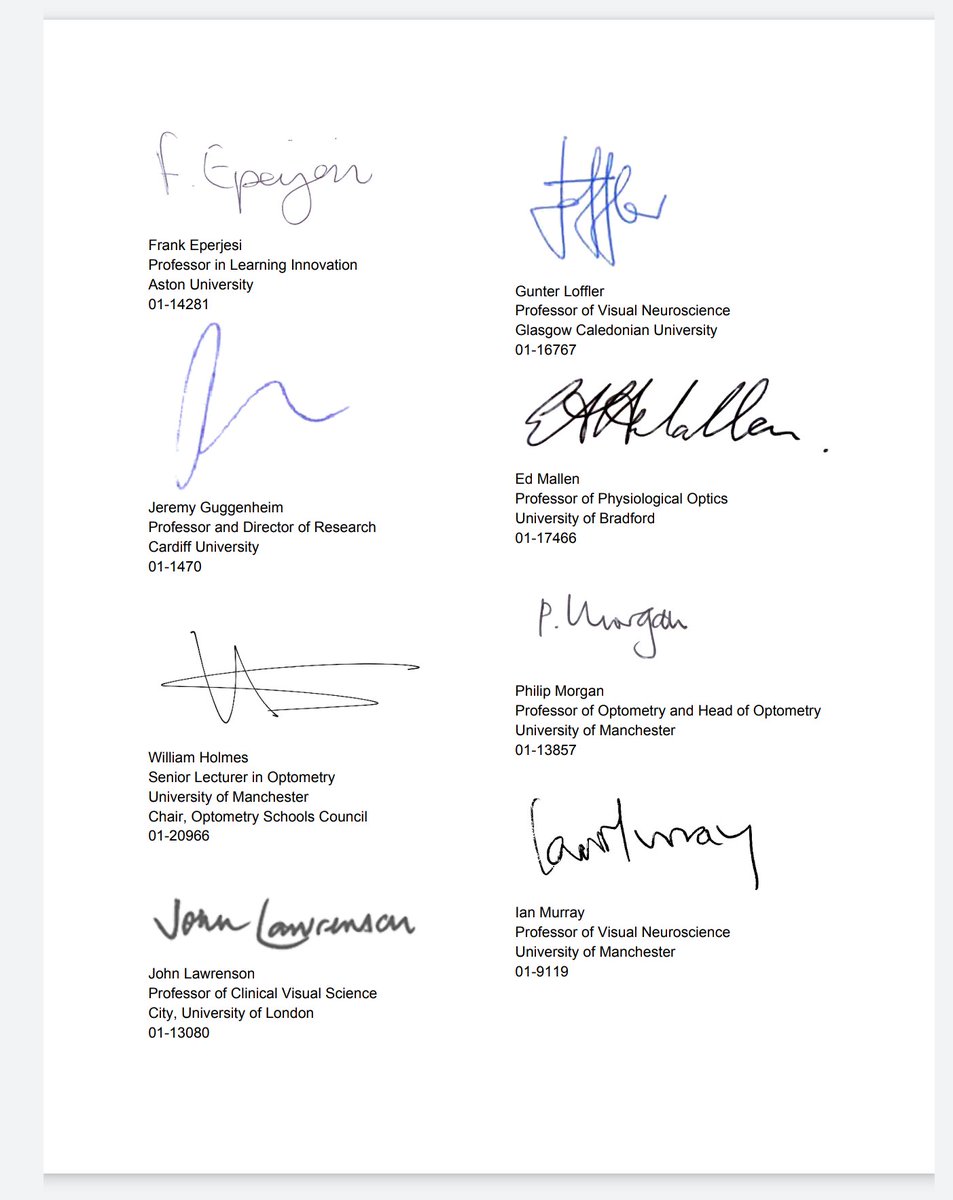 F. Eperjesi
Frank Eperjesi
Professor in Learning Innovation
Aston University
01-14281
Jeremy Guggenheim
Professor and Director of Research
Cardiff University
01-1470
William Holmes
Senior Lecturer in Optometry
University of Manchester
Chair, Optometry Schools Council
01-20966
John Lawrenson
John Lawrenson
Professor of Clinical Visual Science
City, University of London
01-13080
Loffler
Gunter Loffler
Professor of Visual Neuroscience
Glasgow Caledonian University
01-16767
Ed Mallen
Professor of Physiological Optics
University of Bradford
01-17466
P. Morgan
Philip Morgan
Professor of Optometry and Head of Optometry
University of Manchester
01-13857
Ian Murray
Ian Murray
Professor of Visual Neuroscience
University of Manchester
01-9119